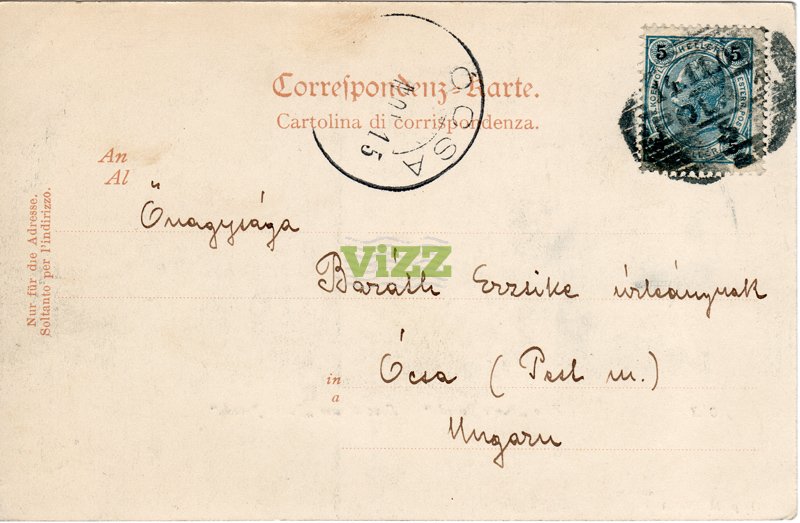 Correspondenz-Karte.
Cartolina di corrispondenza.
ÓCSA
15
5 5
An
Al
Nur für die Adresse.
Soltanto per l'indirizzo.
Őnagysága
ViZZ
Baráth Erzsike úrleánynak
in
a
Ócsa (Pest m.)
Ungarn